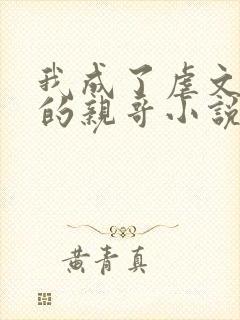 我成了虐文
的親哥小說
黃青真